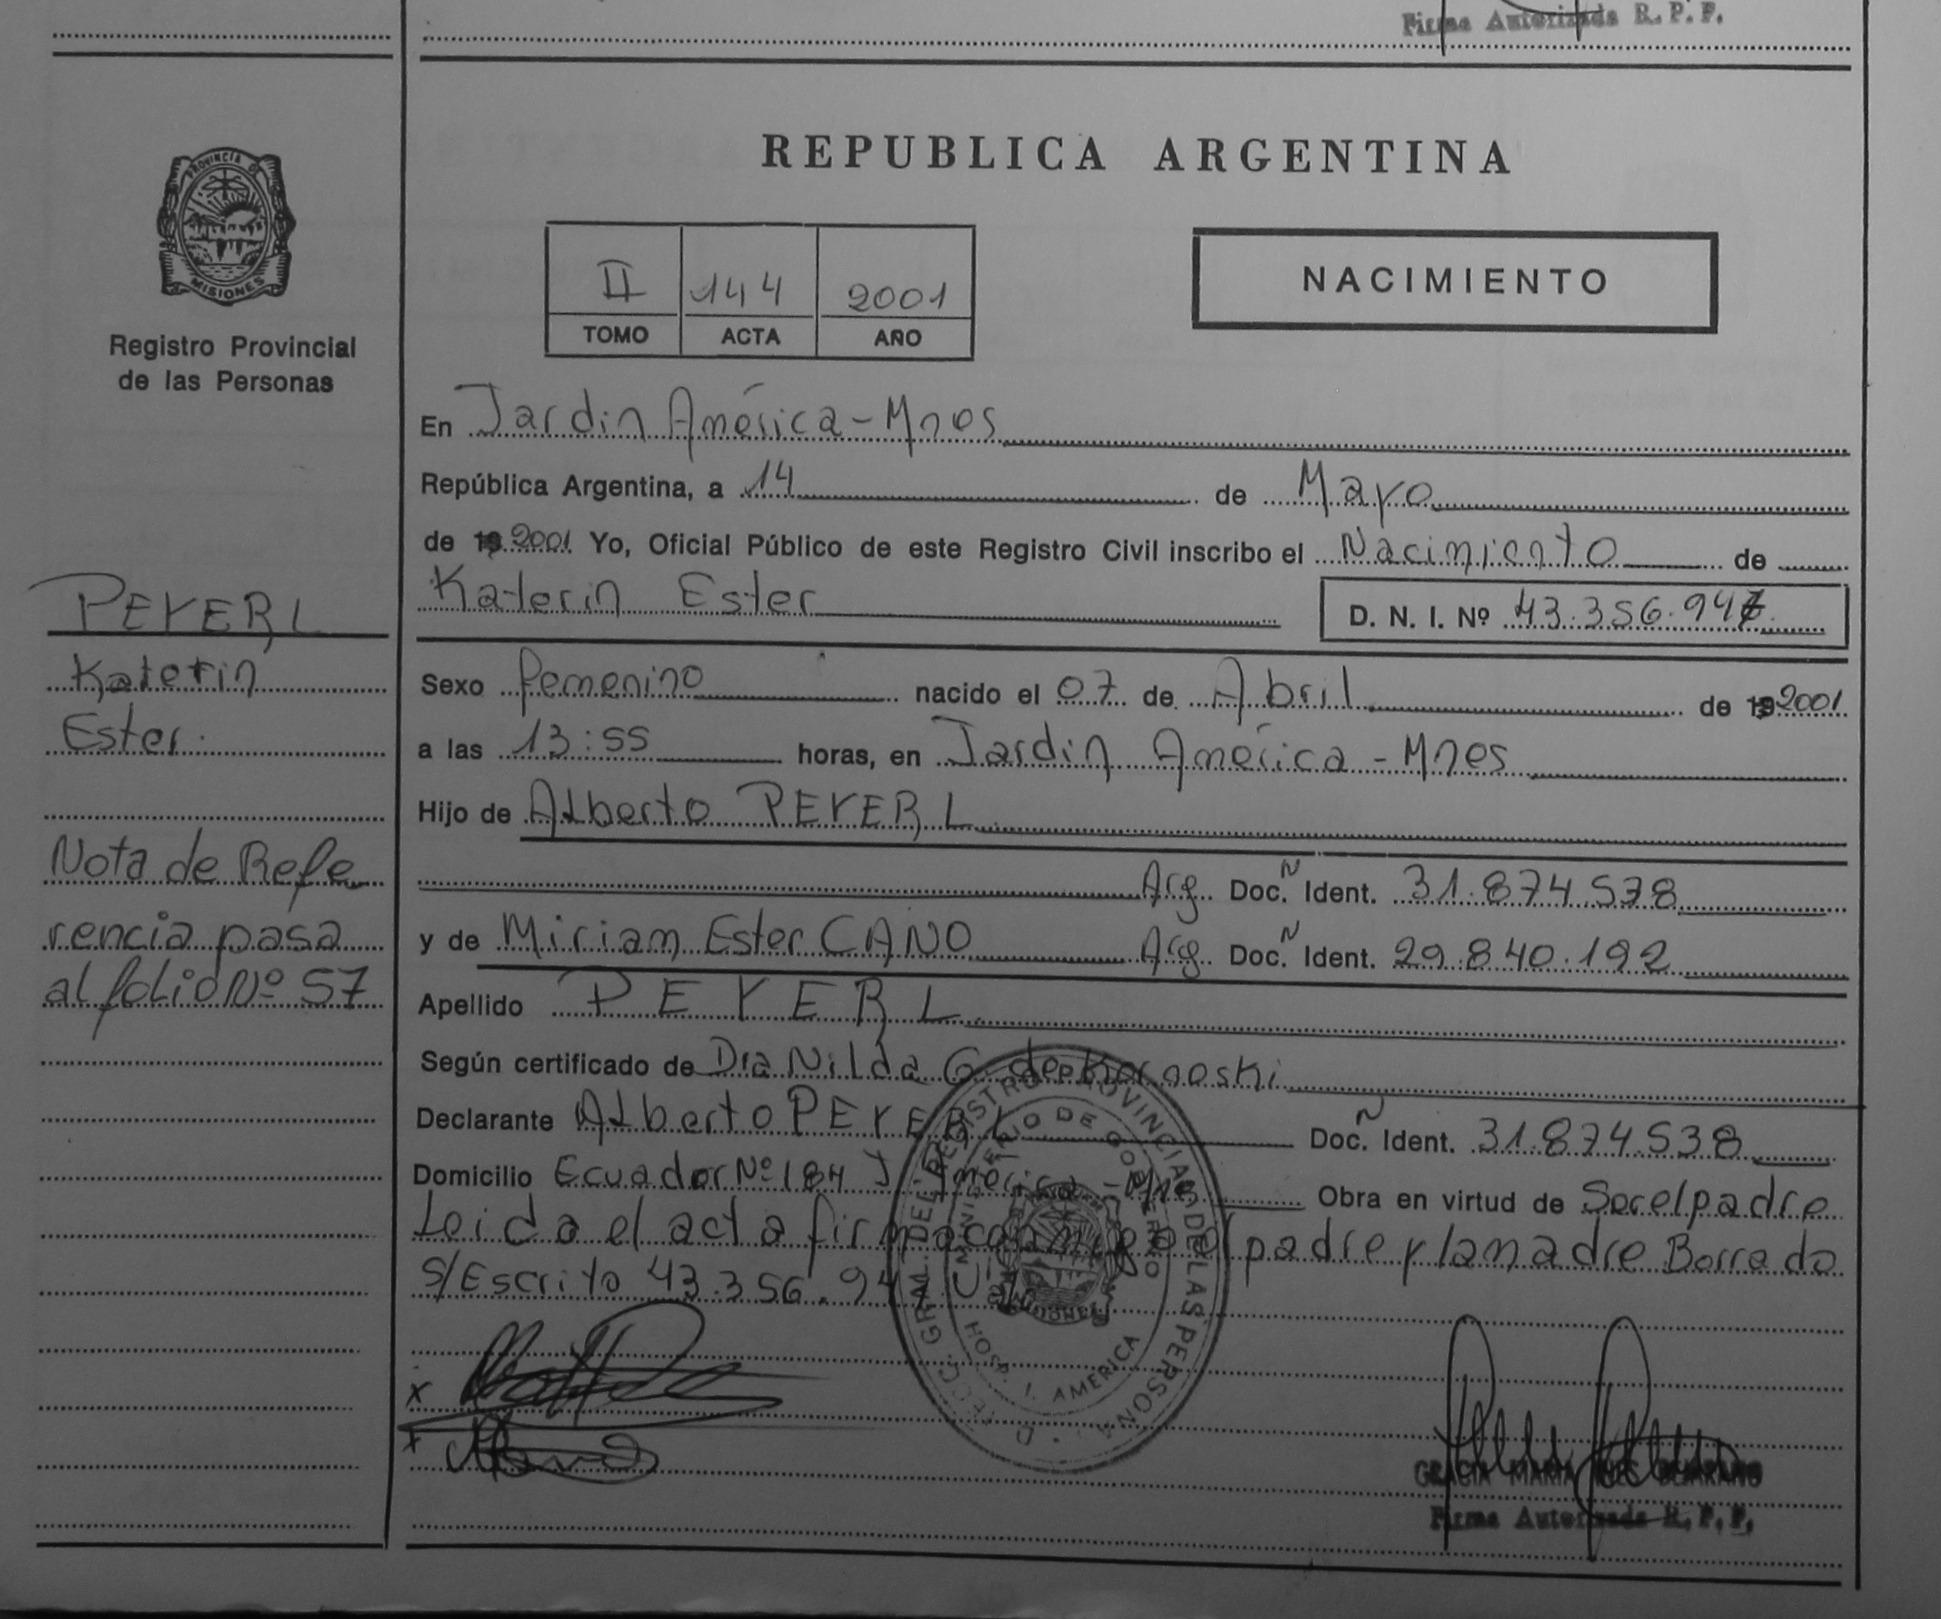 Firma Autorizada R. P. P.
PROVINCIA DE
MISIONES
Registro Provincial
de las Personas
REPUBLICA ARGENTINA
II 144 2001
TOMO ACTA AÑO
NACIMIENTO
En Jardin América - Mnes
República Argentina, a 14 de Mayo
de 19 2001 Yo, Oficial Público de este Registro Civil inscribo el Nacimiento de
Katerin Ester D. N. I. Nº 43.356.947
Sexo femenino nacido el 07 de Abril de 19 2001
a las 13:55 horas, en Jardin América - Mnes
Hijo de Alberto PEYERL
Arg. Doc. N Ident. 31.874.538
y de Miriam Ester CANO Arg. Doc. N Ident. 29.840.192
Apellido PEYERL
Según certificado de Dra Nilda G. de Kornoski
Declarante Alberto PEYERL Doc. N Ident. 31.874.538
Domicilio Ecuador Nº 184 J. América - Mnes Obra en virtud de Ser el padre
Leida el acta firma conmigo el padre y la madre Borrado
s/Escrito 43.356.94
PEYERL
Katerin
Ester.
Nota de Refe
rencia pasa
al folio Nº 57
DIRECC. GRAL. DEL REGISTRO PROVINCIAL DE LAS PERSONAS
MINISTERIO DE GOBIERNO
HOSP. J. AMERICA
MISIONES
x
x
GRACIA MARIA INES BEJARANO
Firma Autorizada R. P. P.